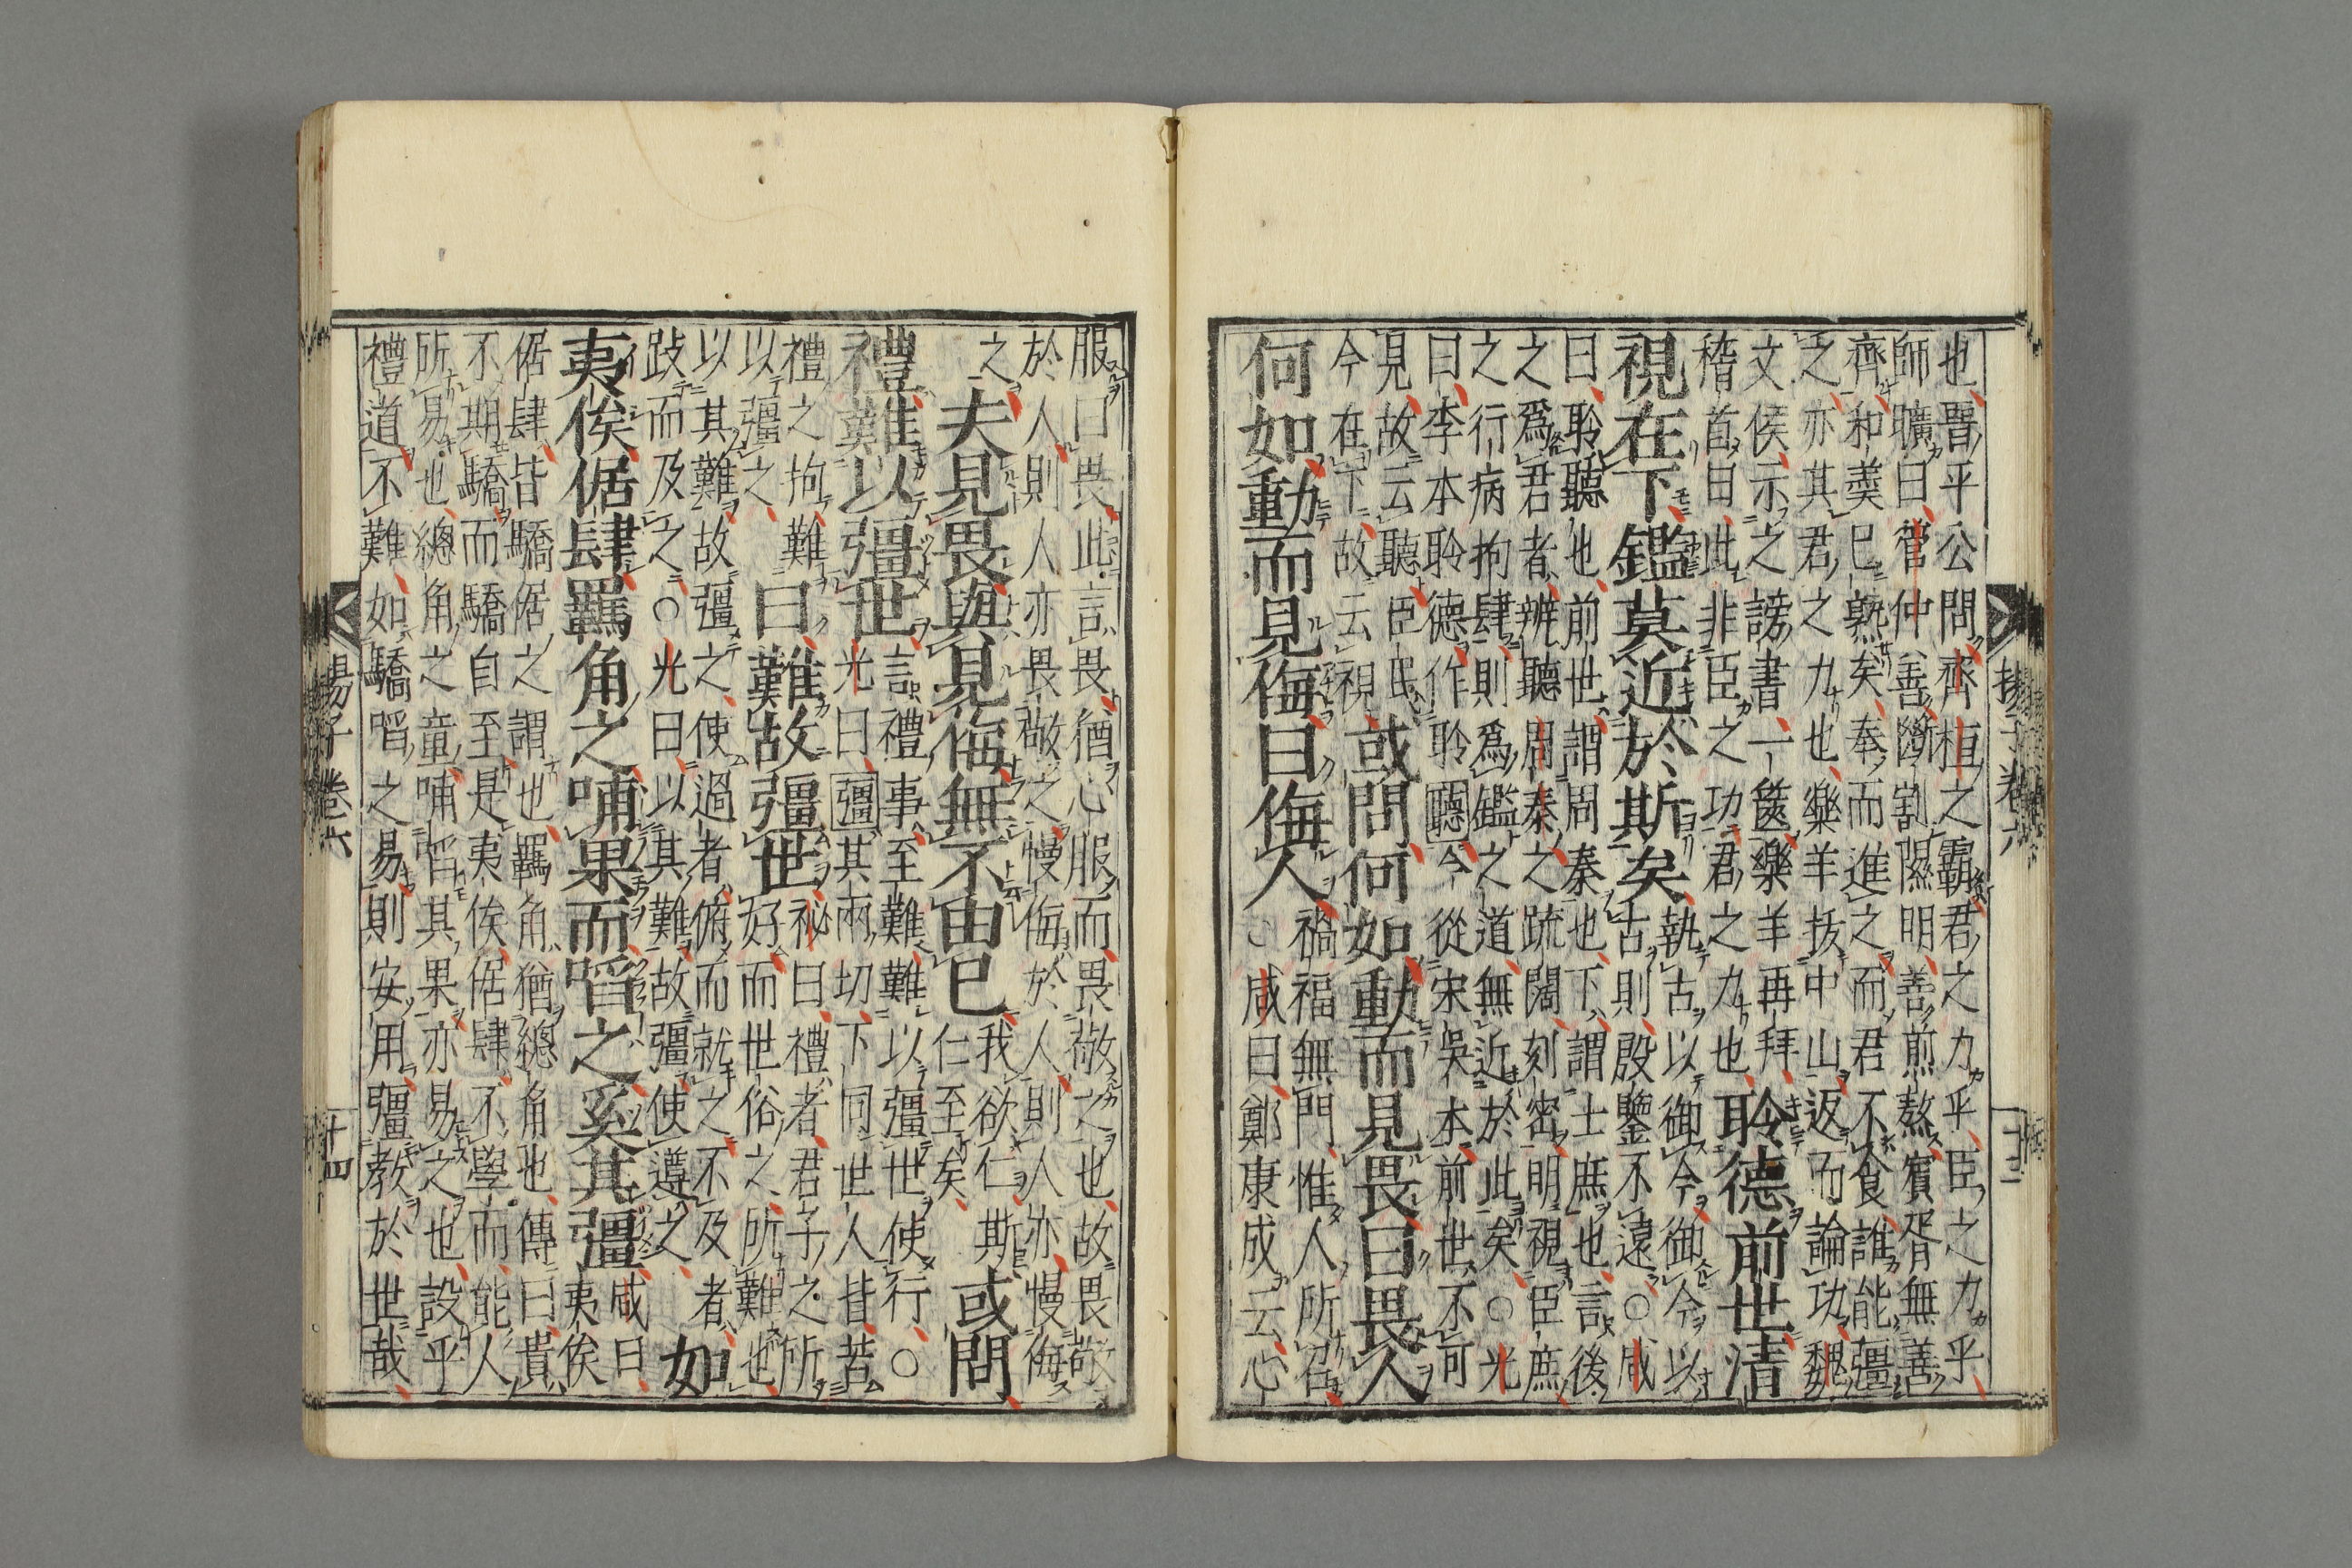 也晉平公問齊桓之霸君之力乎臣之力乎
師曠曰管仲善斷割隰明善煎熬賓胥無善
齊和羹已熟矣奉而進之而君不食誰能彊
之亦其君之力也樂羊拔中山返而論功魏
文侯示之謗書一篋樂羊再拜
稽首曰此非臣之功君之力也
聆德前世清
視在下鑑莫近於斯矣
執古以御今御今以
古則殷鑒不遠○咸
曰聆聽也前世謂周秦也下謂士庶也言後
之爲君者辨聽周秦之疏闊刻密明視臣庶
之行病拘肆則爲鑑之道無近於此矣○光
曰李本聆德作聆聽今從宋吳本前世不可
見故云聽臣民
今在下故云視
或問何如動而見畏曰畏人
何如動而見侮曰侮人
禍福無門惟人所召
○咸曰鄭康成云心
揚子卷六
十三
服曰畏此言畏猶心服而畏敬之也故畏敬
於人則人亦畏敬之慢侮於人則人亦慢侮
之
夫見畏與見侮無不由已
我欲仁斯
仁至矣
或問
禮難以彊世
言禮事至難難以彊世使行○
光曰彊其兩切下同世人皆苦
禮之拘難
以彊之
曰難故彊世
祕曰禮者君子之所
好而世俗之所難也
以其難故彊之使過者俯而就之不及者
跂而及之○光曰以其難故彊使遵之
如
夷俟倨肆羈角之哺果而啗之奚其彊
咸曰
夷俟
倨肆皆驕倨之謂也羈角猶總角也傳曰貴
不期驕而驕自至是夷俟倨肆不學而能人
所易也總角之童哺啗其果亦易之也設乎
禮道不難如驕啗之易則安用彊教於世哉
揚子卷六
十四